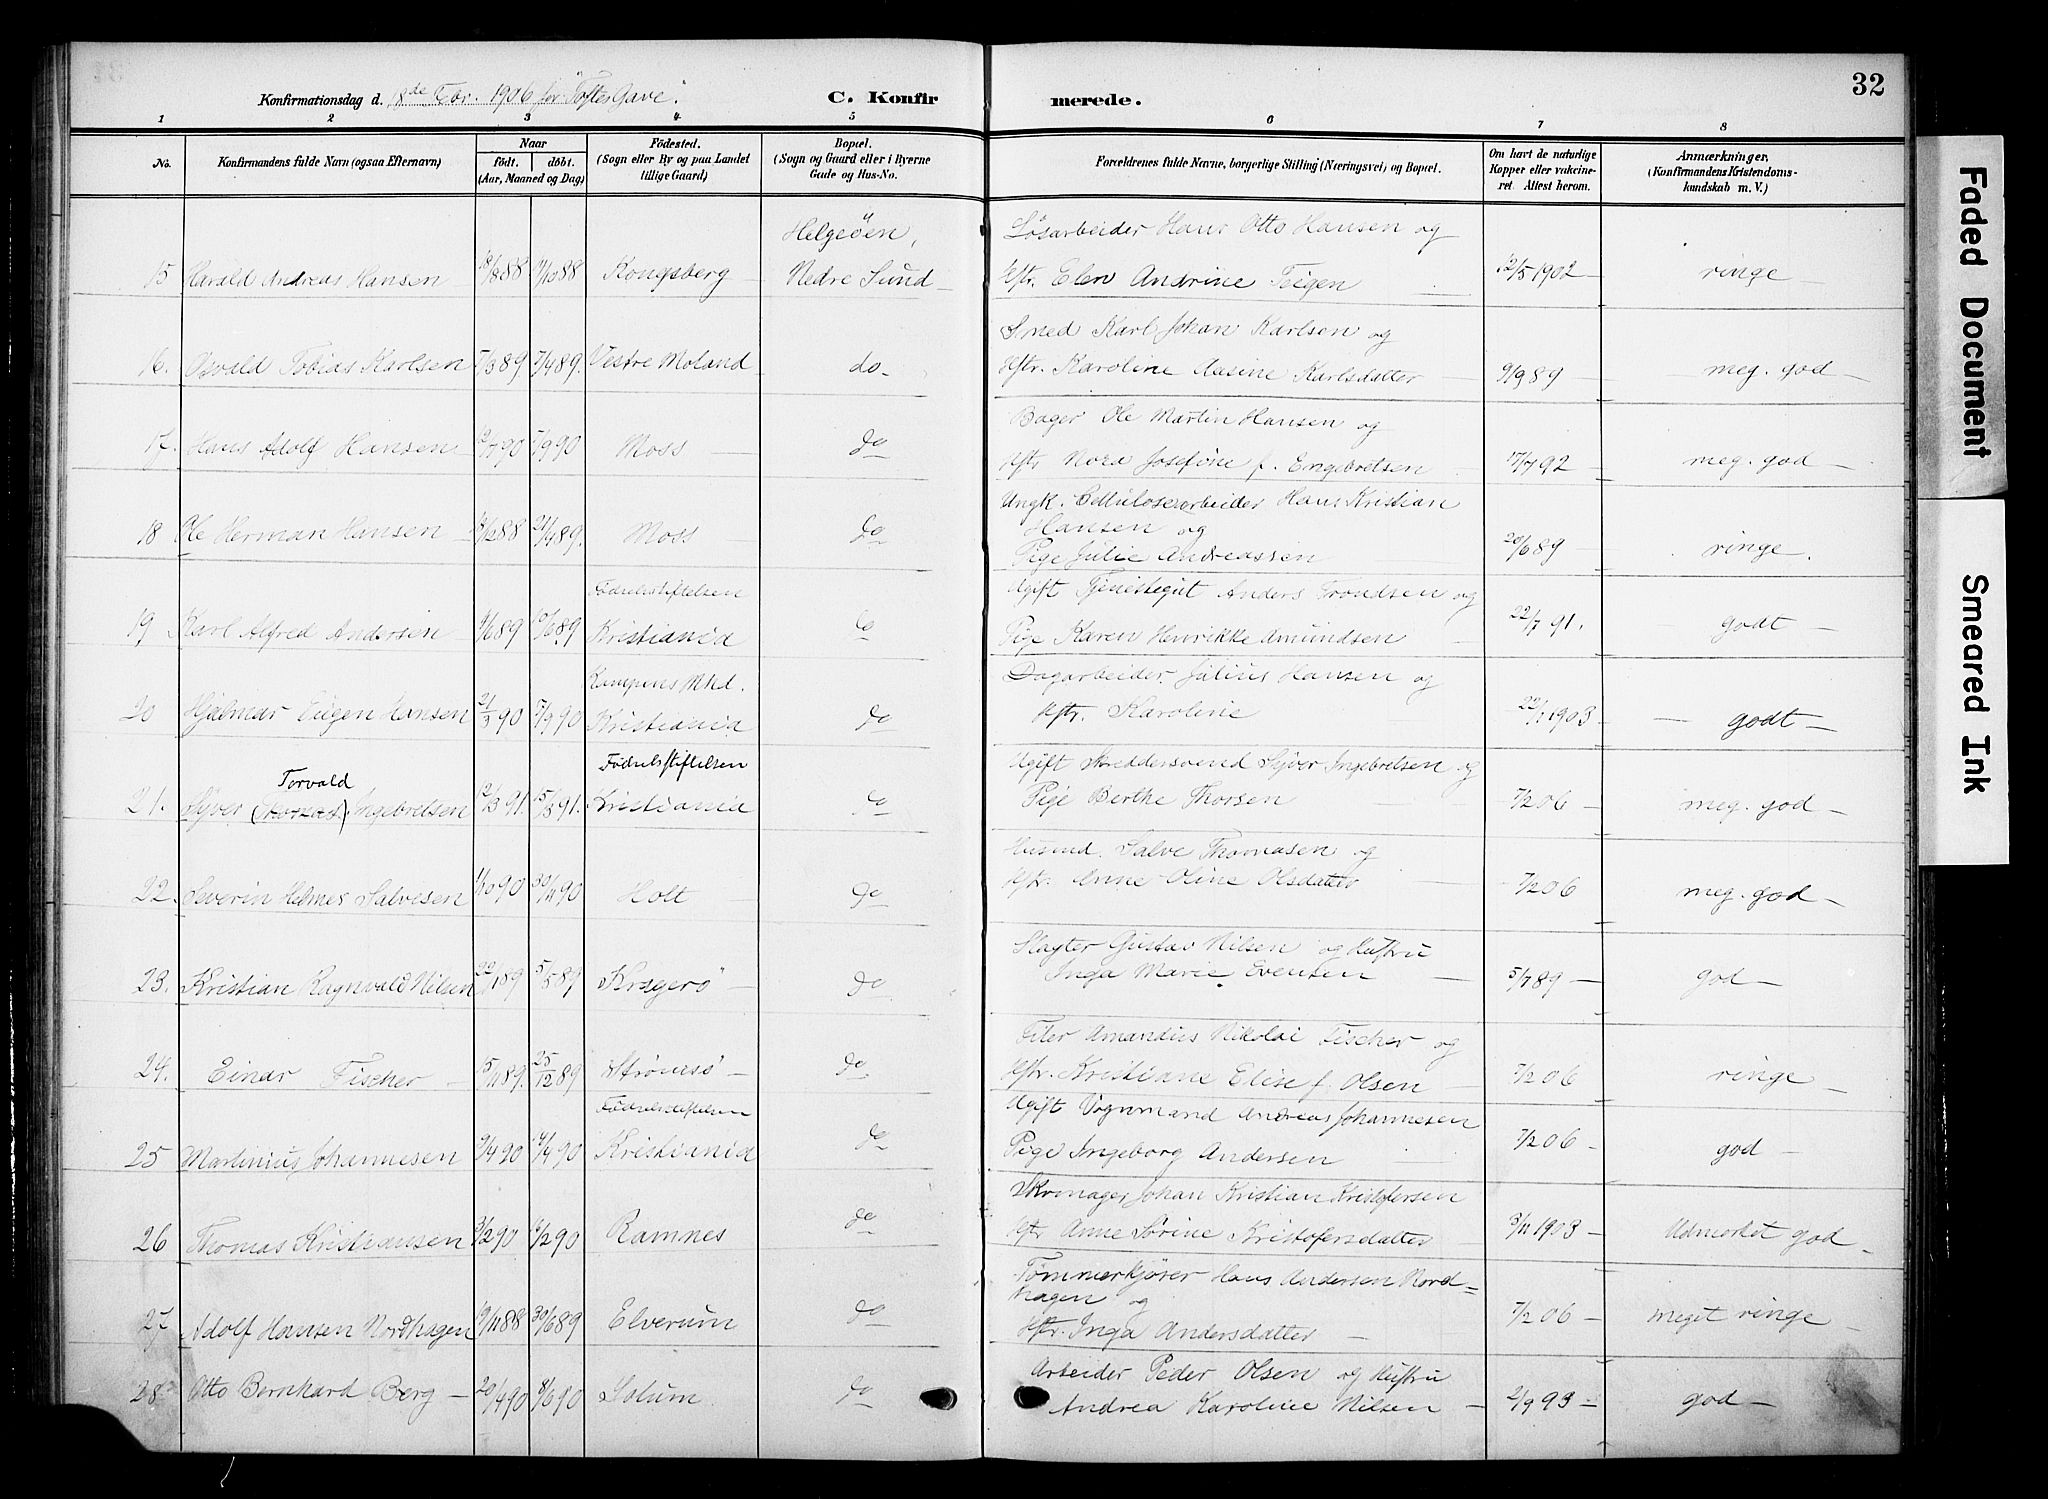 32
Konfirmationsdag d. 18de Febr. 1906 for "Toftes Gave".
C. Konfirmerede.
1 2 3 4 5 6 7 8
No.
Konfirmandens fulde Navn (ogsaa Efternavn)
Naar
født. døbt.
(Aar, Maaned og Dag)
Fødested.
(Sogn eller By og paa Landet
tillige Gaard)
Bopæl.
(Sogn og Gaard eller i Byerne
Gade og Hus-No.
Forældrenes fulde Navne, borgerlige Stilling (Næringsvei) og Bopæl.
Om havt de naturlige
Kopper eller vakcine-
ret. Attest herom.
Anmærkninger,
(Konfirmandens Kristendoms-
kundskab m. V.)
Helgeöen, Løsarbeider Hans Otto Hansen og
15 Harald Andreas Hansen 18/8 88 Kongsberg Nedre Sund Hstr. Elen Andrine Teigen 12/5 1902 ringe
Smed Karl Johan Karlsen og
16. Osvald Tobias Karlsen 7/3 89 7/4 89. Vestre Moland do Hstr. Karoline Aasine Karlsdatter 9/9 89 meg. god
Bager Ole Martin Hansen og
17. Hans Adolf Hansen 12/7 90 7/9 90 Moss do Hstr Nora Josefine f. Engebretsen 17/7 92 meg. god
Ungk. Cellulosearbeider Hans Kristian
Hansen og
18 Ole Herman Hansen 18/12 88 21/4 89. Moss do Pige Julie Andreassen 20/6 89 ringe.
Fødselsstiftelsen Ugift Tjenestegut Anders Trondsen og
19 Karl Alfred Andersen 4/6 89 10/6 89 Kristiania do Pige Karen Henrikke Amundsen 22/7 91. godt
Kampens Mkd. Dagarbeider Julius Hansen og
20 Hjalmar Eugen Hansen 21/3 90 7/9 90 Kristiania do Hstr. Karoline 22/1 1903 godt
Torvald Fødselsstiftelsen Ugift Skreddersvend Syver Ingebretsen og
21. Syver Ingebretsen 12/3 91. 15/3 91. Kristiania do Pige Berthe Thorsen 7/2 06 meg. god
Husmd. Salve Thomasen og
22. Severin Helmer Salvesen 1/10 90 30/11 90 Holt do Hstr. Anne Oline Olsdatter 7/2 06 meg. god
Slagter Gustav Nilsen og Hustru
23. Kristian Ragnvald Nilsen 22/1 89 5/5 89 Kragerö do Inga Marie Evensen 5/7 89 god
Filer Amandus Nikolai Fischer og
24. Einar Fischer 15/11 89. 25/12 89 Strömsö do Hstr. Kristiane Elise f. Olsen 7/2 06 ringe
Fødselsstiftelsen Ugift Vognmand Andreas Johannesen
25 Martinius Johannesen 9/4 90 14/4 90 Kristiania do Pige Ingeborg Andersen 7/2 06 god
Skomager Johan Kristian Kristofersen
26 Thomas Kristiansen 3/2 90 16/2 90 Ramnes do Hstr Anne Sørine Kristofersdatter 3/11 1903 Udmerket god
Tømmerkjører Hans Andersen Nord=
hagen og
27. Adolf Hansen Nordhagen 19/11 88 30/6 89 Elverum do Hstr. Inga Andersdatter 7/2 06 meget ringe
Arbeider Peder Olsen og Hustru
28 Otto Bernhard Berg 20/4 90 8/6 90 Solum do Andrea Karoline Nilsen 2/9 93 god
Faded Document
Smeared Ink